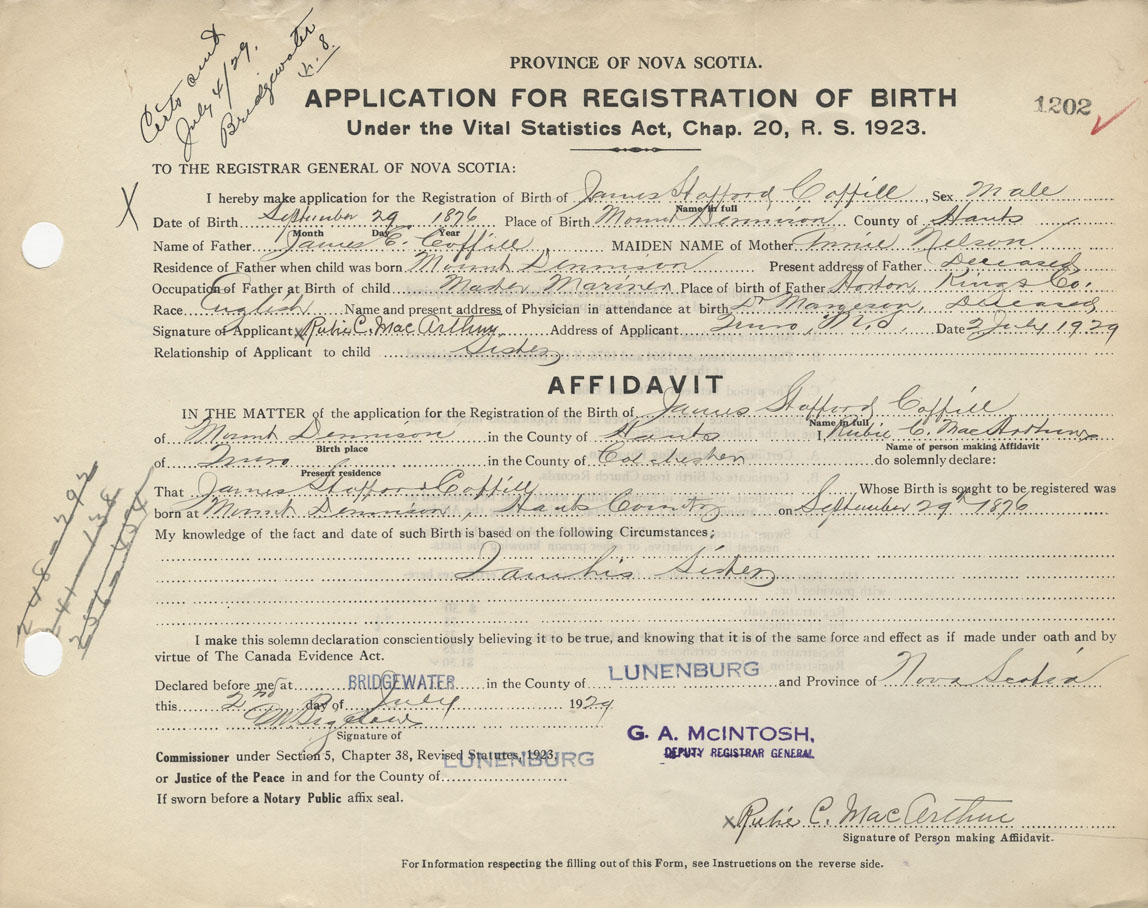 Certs sent
July 4/29.
Bridgewater
N.S.
PROVINCE OF NOVA SCOTIA.
APPLICATION FOR REGISTRATION OF BIRTH
1202
Under the Vital Statistics Act, Chap. 20, R. S. 1923.
TO THE REGISTRAR GENERAL OF NOVA SCOTIA:
X
I hereby make application for the Registration of Birth of James Stafford Coffill Sex Male
Name in full
Date of Birth September 29 1876 Place of Birth Mount Dennison County of Hants
Month Day Year
Name of Father James E. Coffill MAIDEN NAME of Mother Annie Nelson
Residence of Father when child was born Mount Dennison Present address of Father Deceased
Occupation of Father at Birth of child Master Mariner Place of birth of Father Horton Kings Co.
Race English Name and present address of Physician in attendance at birth Dr Margeson, Deceased
Signature of Applicant x Rubie C. MacArthur Address of Applicant Truro, Date 2 July 1929
Relationship of Applicant to child Sister
AFFIDAVIT
IN THE MATTER of the application for the Registration of the Birth of James Stafford Coffill
Name in full
of Mount Dennison in the County of Hants I, Rubie C. MacArthur
Birth place Name of person making Affidavit
of Truro in the County of Colchester do solemnly declare:
Present residence
That James Stafford Coffill Whose Birth is sought to be registered was
born at Mount Dennison Hants County on September 29th 1876
My knowledge of the fact and date of such Birth is based on the following Circumstances;
I am his Sister
I make this solemn declaration conscientiously believing it to be true, and knowing that it is of the same force and effect as if made under oath and by
virtue of The Canada Evidence Act.
Declared before me at BRIDGEWATER in the County of LUNENBURG and Province of Nova Scotia
this 2nd day of July 1929
Signature of
G. A. McINTOSH,
DEPUTY REGISTRAR GENERAL
Commissioner under Section 5, Chapter 38, Revised Statutes, 1923,
LUNENBURG
or Justice of the Peace in and for the County of
If sworn before a Notary Public affix seal.
x Rubie C. MacArthur
Signature of Person making Affidavit.
For Information respecting the filling out of this Form, see Instructions on the reverse side.